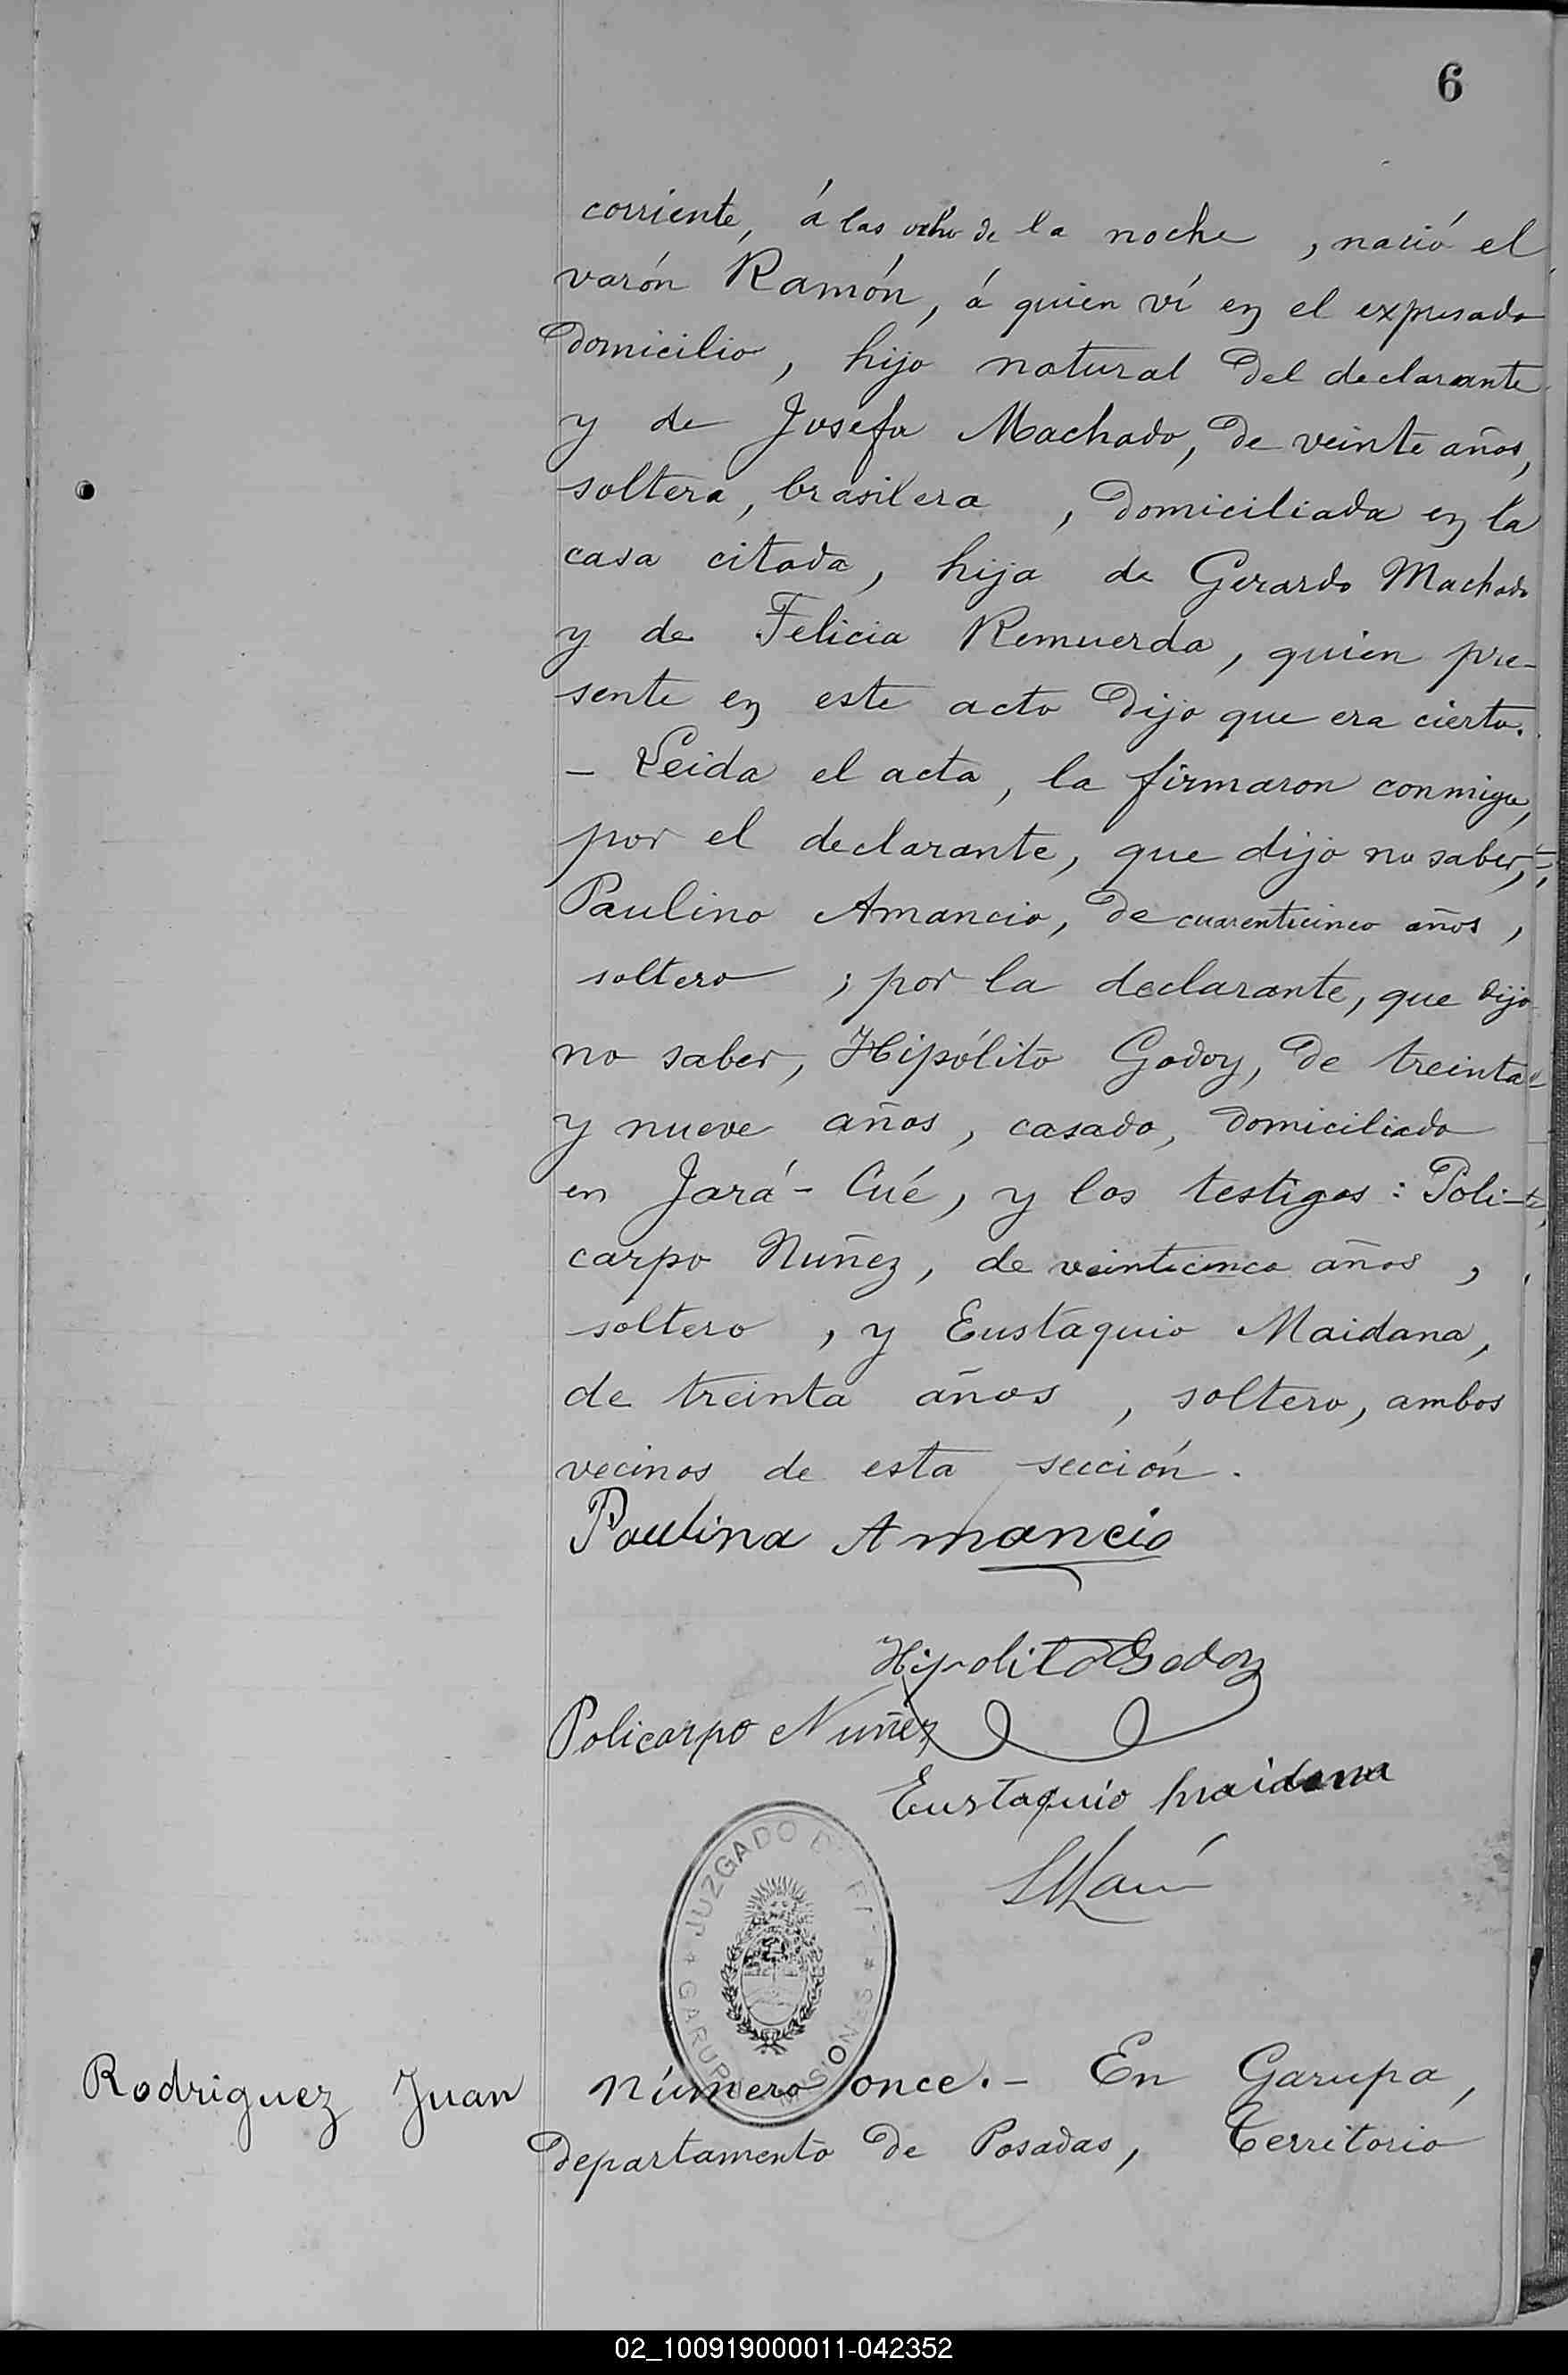 6
corriente, á las ocho de la noche, nació el
varón Ramón, á quien ví en el expresado
domicilio, hijo natural del declarante
y de Josefa Machado, de veinte años,
soltera, brasilera, domiciliada en la
casa citada, hija de Gerardo Machado
y de Felicia Remuerda, quien pre-
sente en este acto dijo que era cierto.
- Leida el acta, la firmaron conmigo,
por el declarante, que dijo no saber,
Paulino Amancio, de cuarenticinco años,
soltero; por la declarante, que dijo
no saber, Hipólito Godoy, de treinta
y nueve años, casado, domiciliado
en Jará-Cué, y los testigos: Poli-
carpo Nuñez, de veinticinco años,
soltero, y Eustaquio Maidana,
de treinta años, soltero, ambos
vecinos de esta sección.
Paulina Amancio
Hipolito Godoy
Policarpo Nuñez
Eustaquio Maidana
JUZGADO DE
GARUPÁ MISIONES
Rodriguez Juan
Número once.- En Garupa,
departamento de Posadas, Territorio
02_100919000011-042352